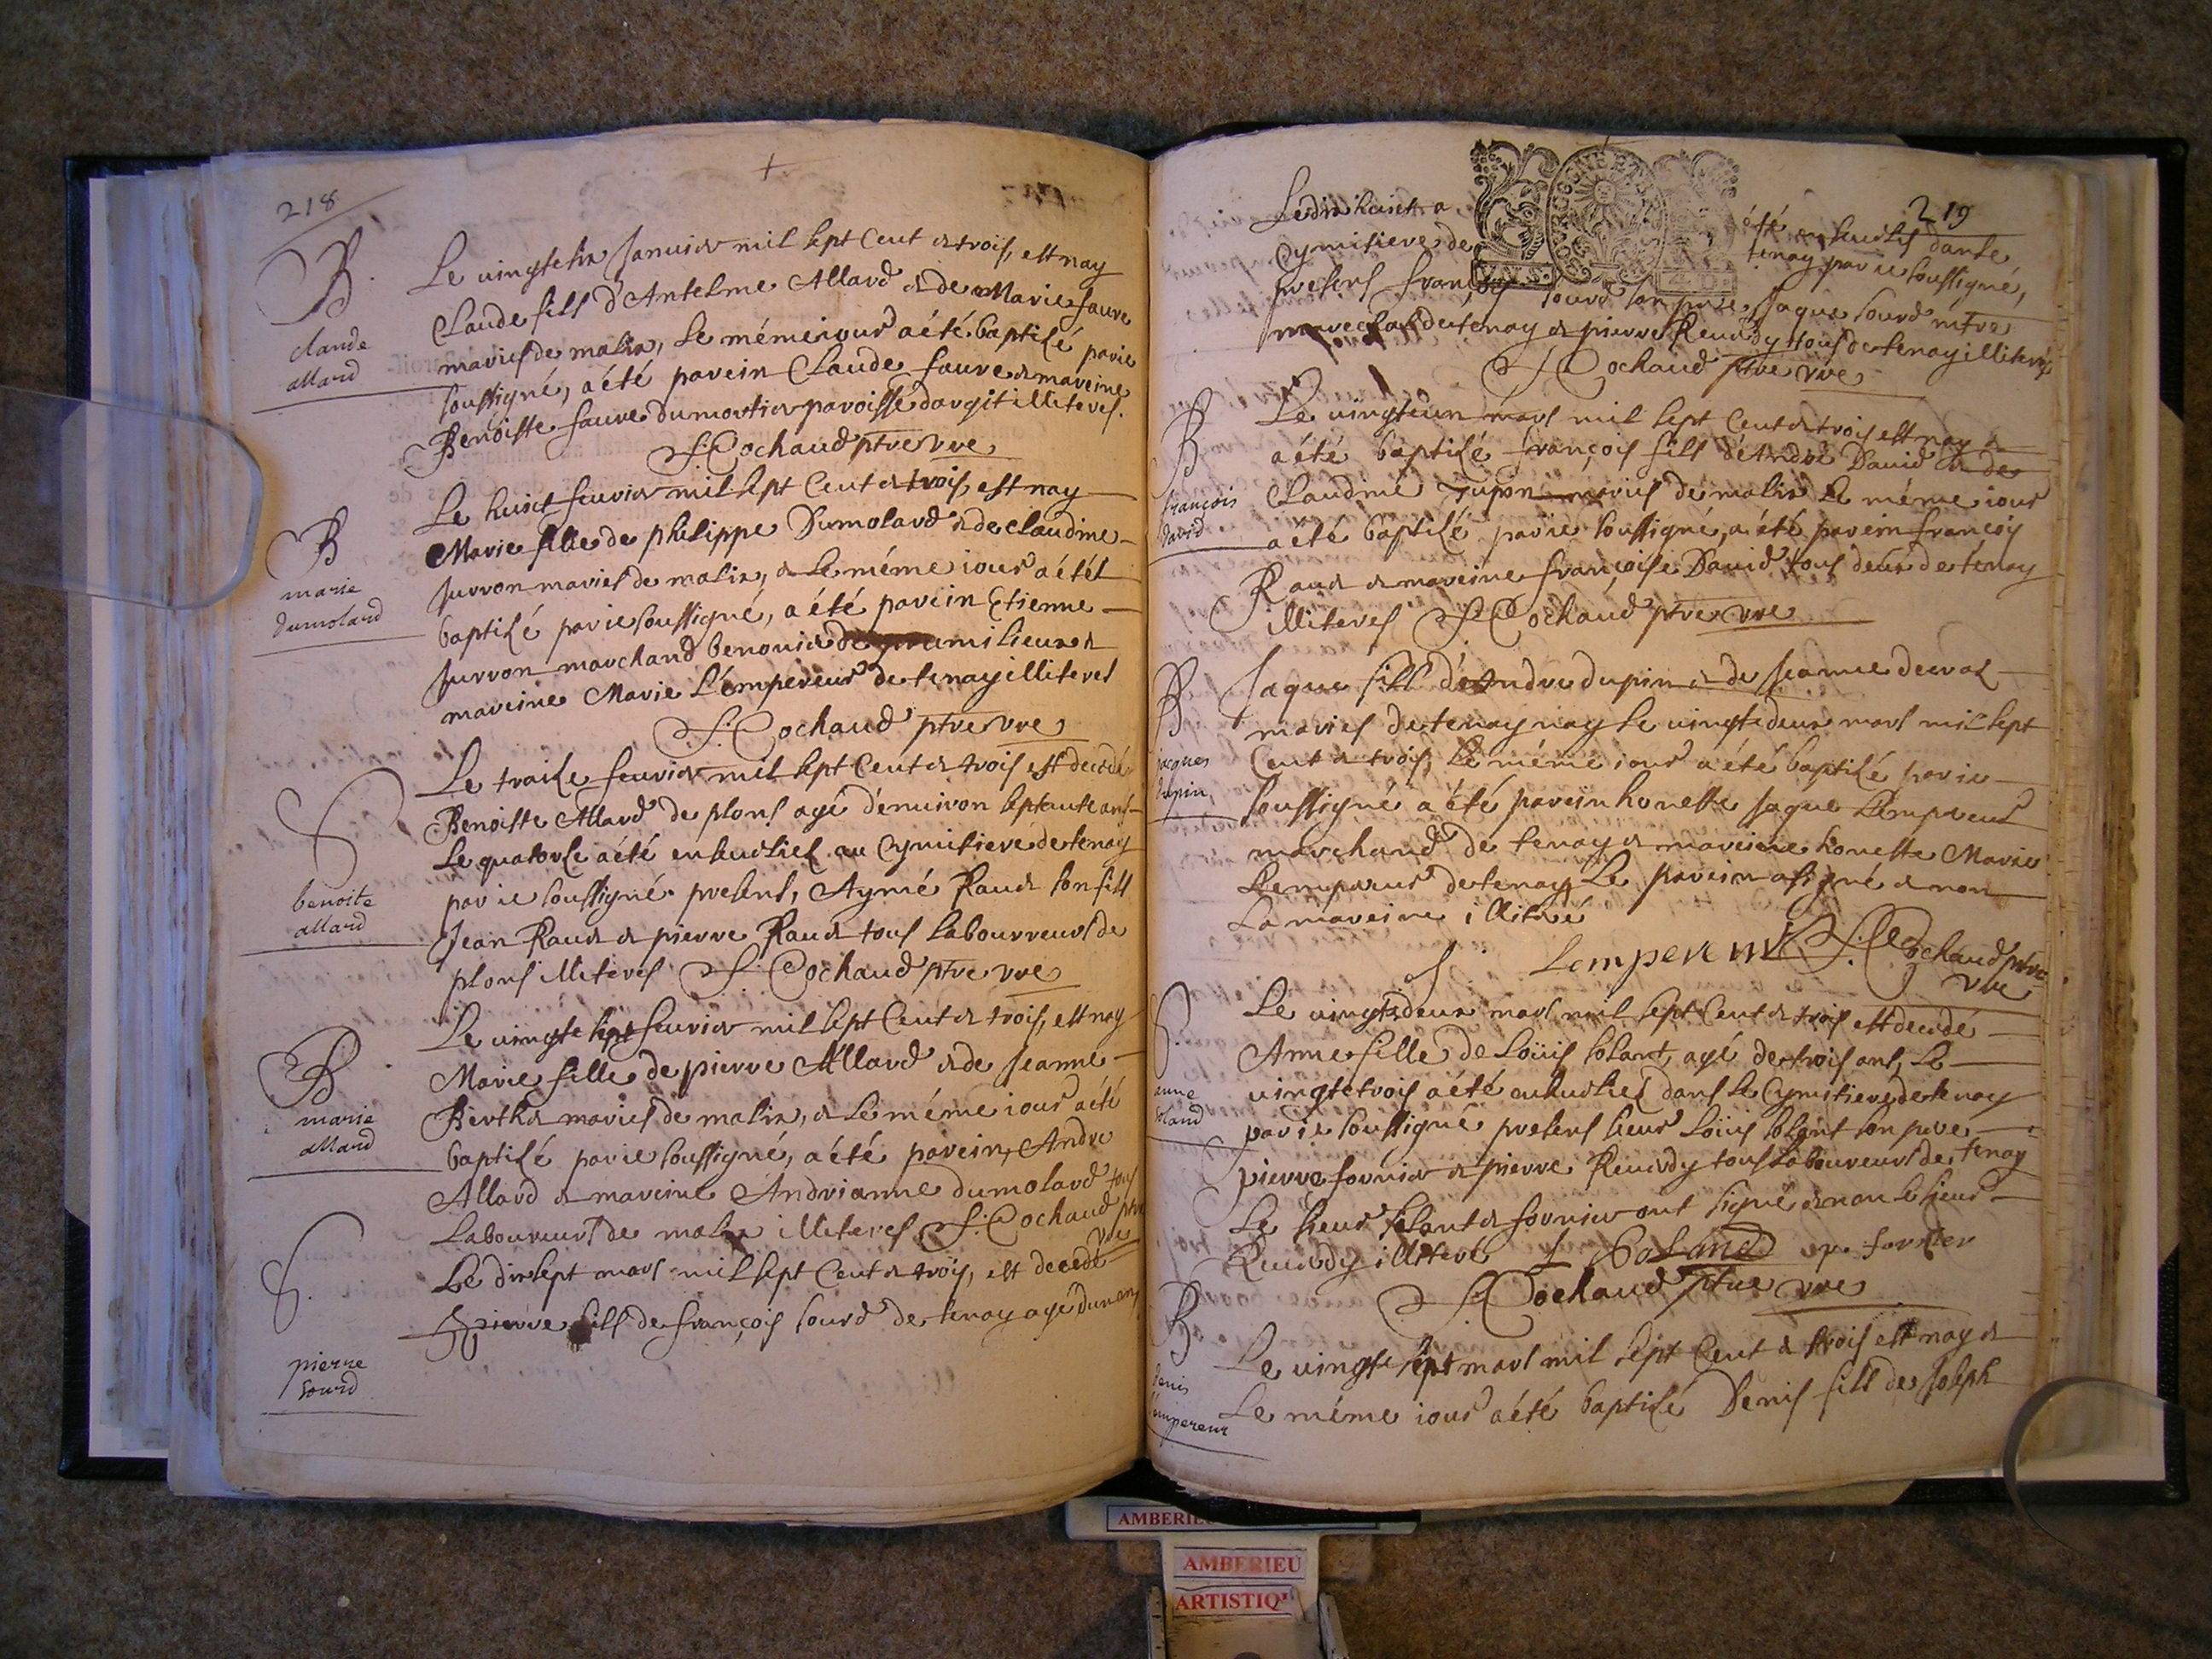 218
B
claude
allard
Le vingtesix Janvier mil sept Cent et trois, est nay
Claude fils d'Antelme Allard et de Marie faure
mariés de malix, le même iour a été baptisé par ie
soussigné, a été parein Claude faure et mareine
Benoiste faure du mortier paroisse dargit illiteres.
S. Cochaud ptre vre
B
marie
dumolard
Le huict feuvier mil sept Cent et trois, est nay
Marie fille de philippe Dumolard et de claudine
Juvron mariés de malix, et le même iour a étét
baptisé par ie soussigné, a été parein Etienne
Juvron marchand benonier de milieux et
mareine Marie L'empereur de tenay illiteres
S. Cochaud ptre vre
S
benoite
allard
Le traise feuvier mil sept Cent et trois est decedé
Benoiste Allard de plons agé d'enuiron septante ans
Le quatorse a été enseuelies au Cymitiere de tenay
par ie soussigné presens, Aymé Raud son fill
Jean Raud et pierre Raud tous labourreurs de
plons illiteres S. Cochaud ptre vre
B
marie
allard
Le vingte sept feuvier mil sept Cent et trois, est nay
Marie fille de pierre Allard et de Jeanne
Berthet mariés de malix, et le même iour a été
baptisé par ie soussigné, a été parein, Andre
Allard et mareine Andrianne dumolard tous
Laboureurs de malix illiteres S. Cochaud ptre
vre
S.
pierre
sourd
Le dixsept mars mil sept Cent et trois, est decedé
pierre fils de françois sourd de tenay agé dun an
219
Le dix huict a été enseuelis dans le
Cymitiere de tenay par ie soussigné,
BOURGOGNE ET
presens françois sourd son pere, Jaque sourd mtre
marechal de tenay et pierre Reuerdy tous de tenay illiterés
S. Cochaud ptre vre
B
françois
david
Le vingteun mars mil sept Cent et trois est nay et
a été baptisé françois fils d'Andre Dauid et de
Claudine mariés de malix le même iour
a été baptisé par ie soussigné, a été parein françois
Raud et mareine françoise Dauid tous deux de tenay
illiteres S. Cochaud ptre vre
B
jacques
dupin
Jaque fils d'Andre dupin et de Jeanne
mariés de tenay nay le vingtedeux mars mil sept
Cent et trois, le même iour a été baptisé par ie
soussigné a été parein honeste Jaque Lempereur
marchand de tenay et mareine honeste Marie
Lempereur de tenay Le parein a signé et non
la mareine illiteré
Lempereur S. Cochaud ptre
vre
S.
anne
soland
Le vingtedeux mars mil sept Cent et trois est decedé
Anne fille de Loüis solant, agé de trois ans, le
vingtetrois a été enseuelies dans le Cymitiere de tenay
par ie soussigné presens sieur Loüis solant son pere
pierre fornier et pierre Reuerdy tous laboureurs de tenay
Le sieur solant et fornier ont signé et non le sieur
Reuerdy illiteré L Soland p. fornier
S. Cochaud ptre vre
B
denis
lempereur
Le vingte sept mars mil sept Cent et trois est nay et
Le même iour a été baptisé Denis fils de Joseph
AMBERIEU
AMBERIEU
ARTISTIQU